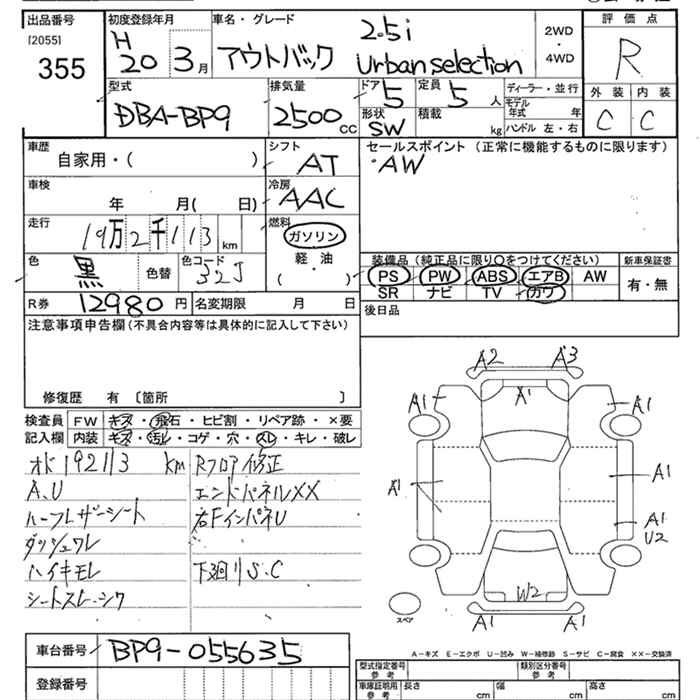 出品番号 初度登録年月 車名・グレード 評価点
[2055] H 20 3月 アウトバック 2.5i 2WD ・ 4WD R
355 Urban selection
型式 排気量 ドア 5 定員 5人 ディーラー・並行 外装 内装
DBA-BP9 2500 cc 形状 SW 積載 kg モデル年式 年 C C
ハンドル 左・右
車歴 シフト セールスポイント(正常に機能するものに限ります)
自家用・( ) AT ・AW
車検 冷房
年 月( 日) AAC
走行 燃料
19万2千113km ガソリン
軽・油
( )
色 色コード 装備品(純正品に限り○をつけてください) 新車保証書
黒 色替 32J PS PW ABS エアB AW 有・無
SR ナビ TV カワ
R券 12980円 名変期限 月 日 後日品
注意事項申告欄(不具合内容等は具体的に記入して下さい)
修復歴 有 〔箇所 〕
検査員 FW キズ・飛石・ヒビ割・リペア跡・×要
記入欄 内装 キズ・汚れ・コゲ・穴・スレ・キレ・破レ
オド192113km Rフロア修正
A.U エンドパネルXX
ハーフレザーシート 右FインパネU
ダッシュワレ
ハイキモレ 下廻りS.C
シートスレ・シワ
A2 A3
A1 A1 A1
A1 A1
A1
U2
W2
A1 A1
スペア
車台番号 BP9-055635
登録番号
A−キズ E−エクボ U−凹み W−補修跡 S−サビ C−腐食 XX−交換済
型式指定番号 参考 類別区分番号 参考
車庫証明用 参考 長さ cm 幅 cm 高さ cm